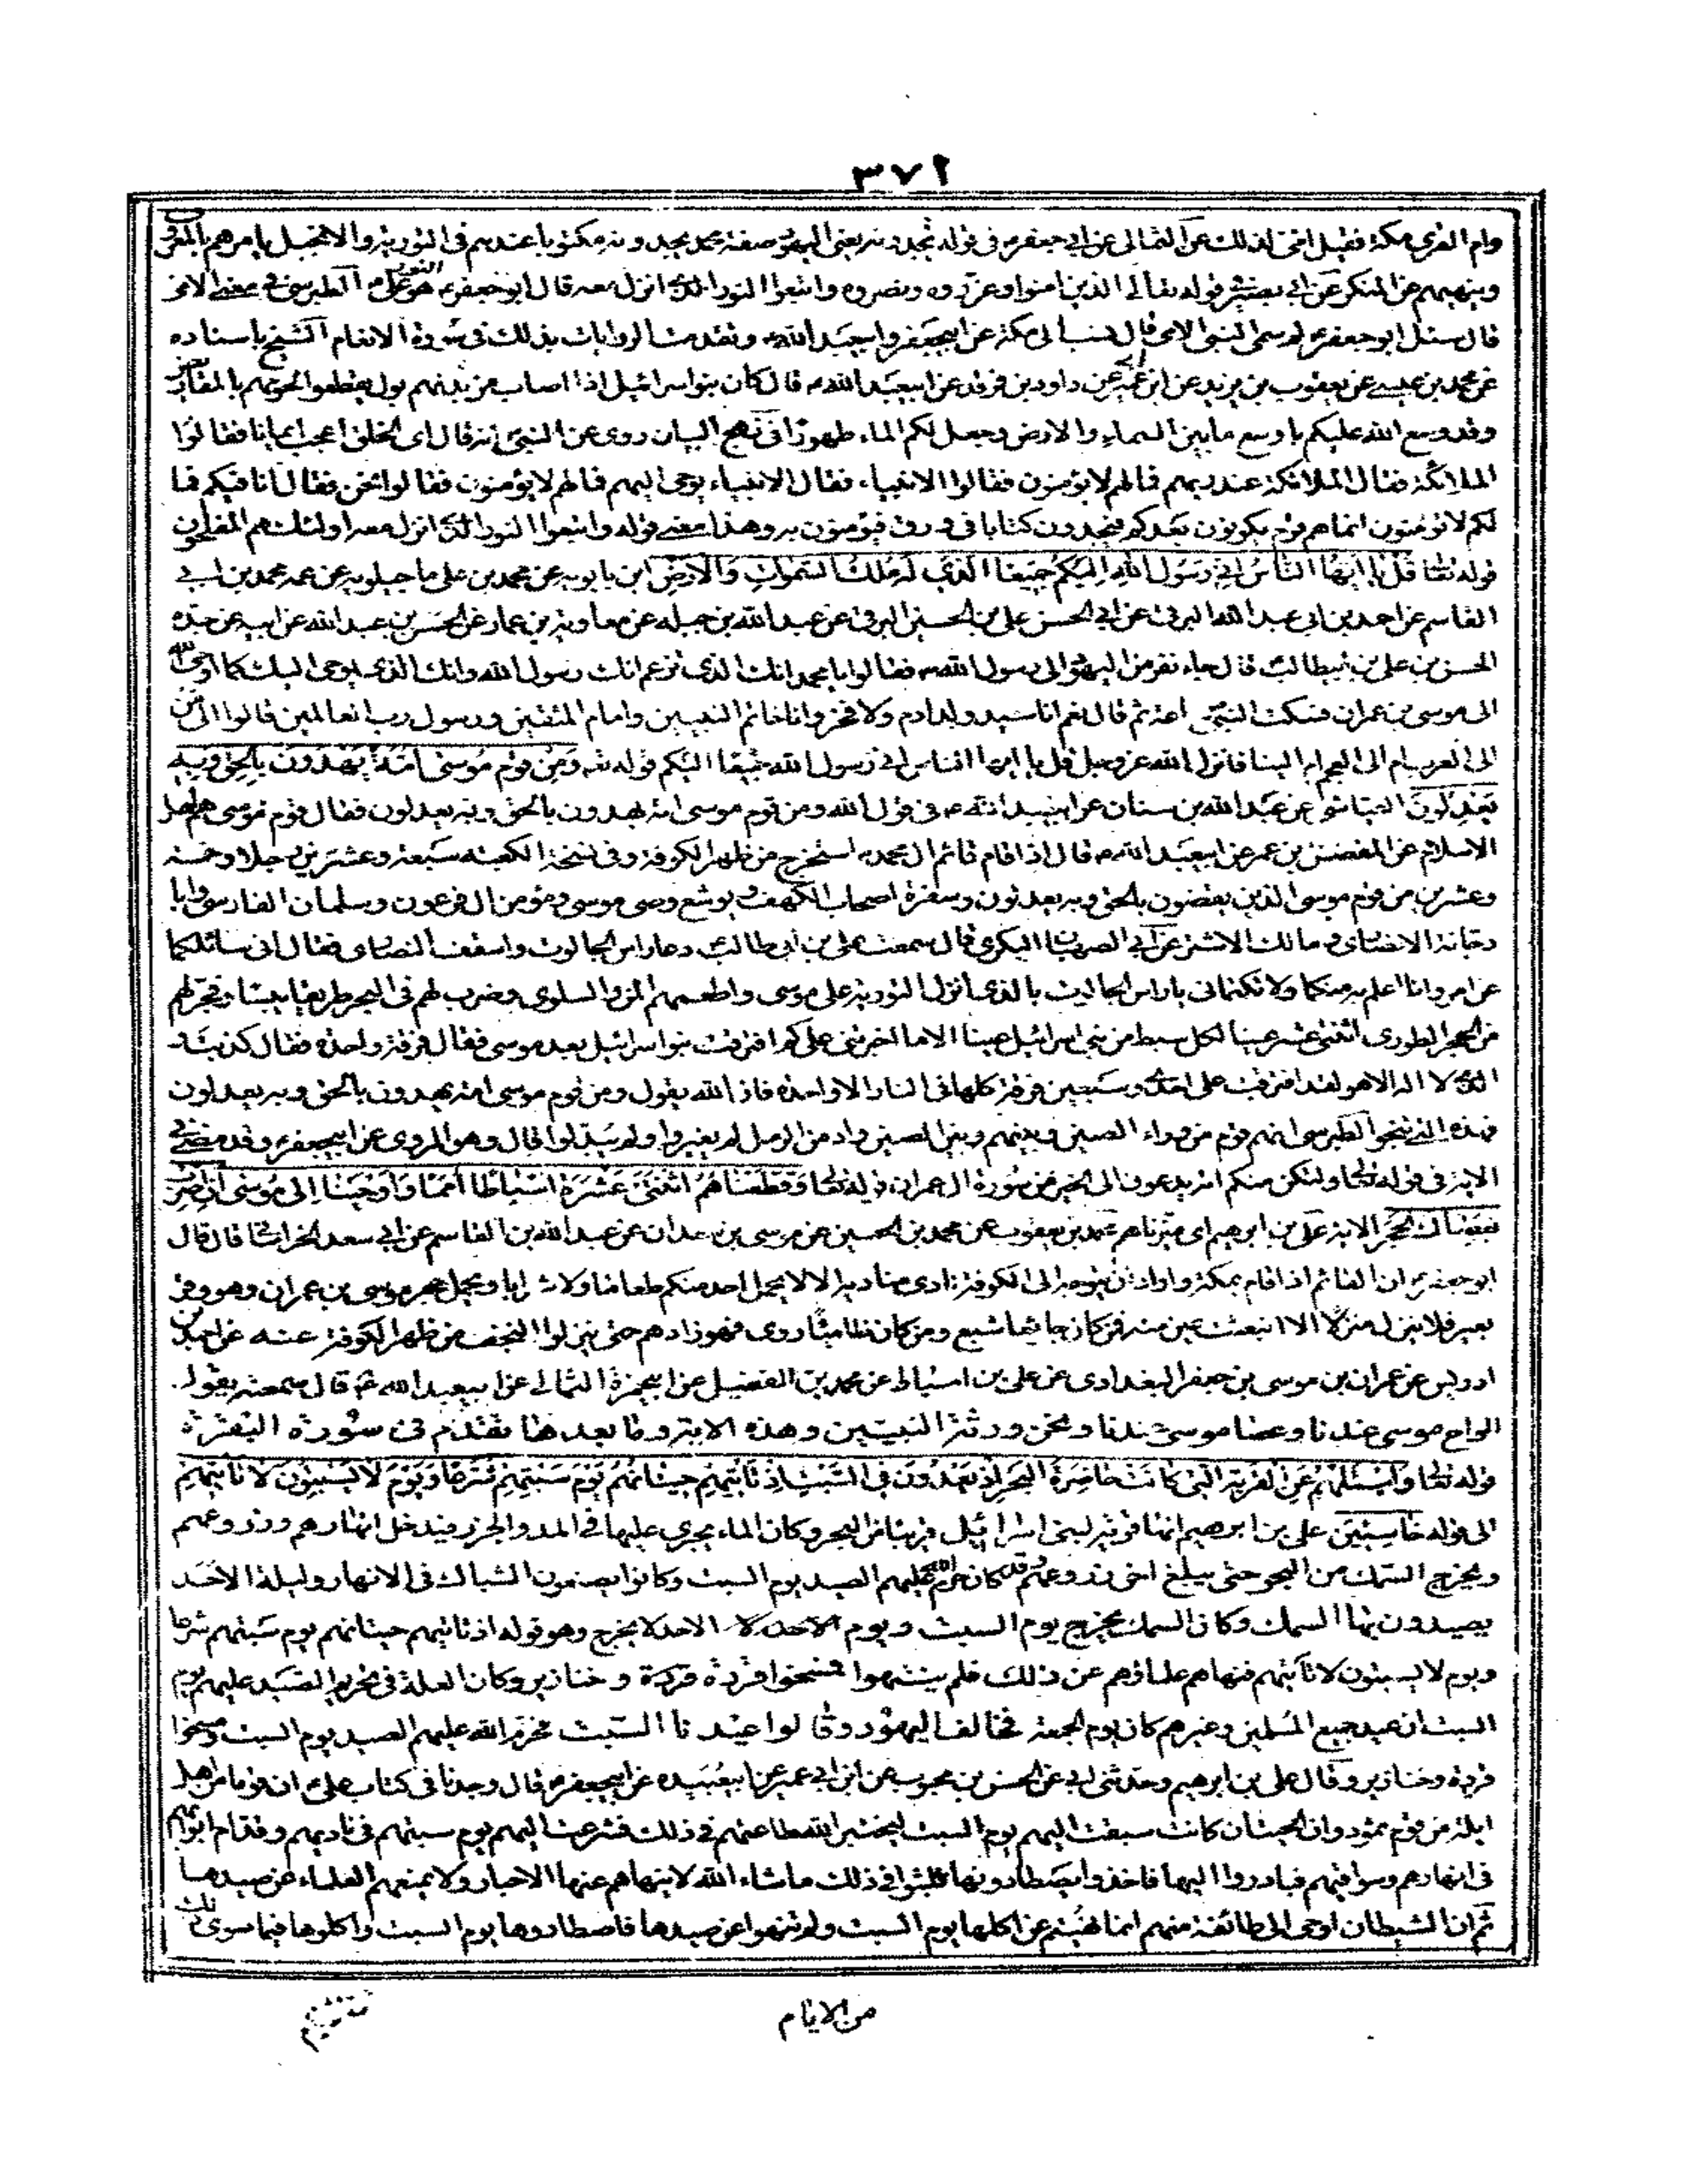 ٣٧٢
وام القرى مكة فقيل امي لذلك عن الثمالى عن ابي جعفر ع فى قوله تجدونه يعنى اليهود صفة محمد يجدونه مكتوبا عندهم فى التورية والانجيل يامرهم بالمعروف
وينهيهم عن المنكر عن ابي بصير فى قوله تعالى الذين امنوا وعزروه ونصروه واتبعوا النور الذى انزل معه قال ابو جعفر ع النور هو على ع الطبرسى فى معنى الامى
قال سئل ابو جعفر ع لم سمى النبى الامى قال نسب الى مكة عن ابيجعفر وابيعبد الله وتقدمت الروايات بذلك فى سورة الانعام الشيخ باسناده
عن محمد بن عيسى عن يعقوب بن يزيد عن ابن ابى عمير عن داود بن فرقد عن ابيعبد الله ع قال كان بنو اسرائيل اذا اصاب من بدنهم بول يقطعوا لحومهم بالمقاريض
وقد وسع الله عليكم باوسع ما بين السماء والارض وجعل لكم الماء طهورا فى نهج البيان روى عن النبى انه قال اى الخلق اعجب ايمانا فقالوا
الملائكة فقال الملائكة عند ربهم فما لهم لا يؤمنون فقالوا الانبياء فقال الانبياء يوحى اليهم فما لهم لا يؤمنون فقالوا نحن فقال انا فيكم فما
لكم لا تؤمنون انما هم قوم يكونون بعدكم فيجدون كتابا فى ورق فيؤمنون به وهذا معنى قوله واتبعوا النور الذى انزل معه اولئك هم المفلحون
قوله تعالى قل يا ايها الناس اني رسول الله اليكم جميعا الذي له ملك السموات والارض ابن بابويه عن محمد بن على ماجيلويه عن عمه محمد بن ابى
القاسم عن احمد بن ابى عبد الله البرقى عن ابي الحسن على بن الحسين البرقى عن عبد الله بن جبله عن معاوية بن عمار عن الحسن بن عبد الله عن ابيه عن جده
الحسن بن على بن ابيطالب قال جاء نفر من اليهود الى رسول الله فقالوا يا محمد انك الذى تزعم انك رسول الله وانك الذى يوحى اليك كما اوحى الله
الى موسى بن عمران فسكت النبى ساعة ثم قال نعم انا سيد ولد ادم ولا فخر وانا خاتم النبيين وامام المتقين ورسول رب العالمين قالوا الى من
الى العرب ام الى العجم ام الينا فانزل الله عز وجل قل يا ايها الناس اني رسول الله جميعا اليكم قوله تعالى ومن قوم موسى امة يهدون بالحق وبه
يعدلون العياشى عن عبد الله بن سنان عن ابيعبد الله ع فى قول الله ومن قوم موسى امة يهدون بالحق وبه يعدلون فقال قوم موسى هم اهل
الاسلام عن المفضل بن عمر عن ابيعبد الله ع قال اذا قام قائم ال محمد استخرج من ظهر الكوفة وفى نسخة الكعبة سبعة وعشرين رجلا وخمسة
وعشرين من قوم موسى الذين يقضون بالحق وبه يعدلون وسبعة اصحاب الكهف ويوشع وصى موسى ومؤمن ال فرعون وسلمان الفارسى وابا
دجانة الانصارى ومالك الاشتر عن ابي الصهبان البكرى قال سمعت على بن ابى طالب ع دعا راس الجالوت واسقف النصارى فقال انى سائلكما
عن امر وانا اعلم به منكما ولا تكتمانى يا راس الجالوت بالذى انزل التورية على موسى واطعمهم المن والسلوى وضرب لهم فى البحر طريقا يبسا وفجر لهم
من الحجر الطورى اثنتى عشر عينا لكل سبط من بني اسرائيل عينا الا ما اخبرتني على كم افترقت بنو اسرائيل بعد موسى فقال فرقة واحدة فقال كذبت و
الذى لا اله الا هو لقد افترقت على احدى وسبعين فرقة كلها فى النار الا واحدة فان الله يقول ومن قوم موسى امة يهدون بالحق وبه يعدلون
فهذه التى تنجوا الطبرسى انهم قوم من وراء الصين وبينهم وبين الصين واد من الرمل لم يغيروا ولم يبدلوا قال وهو المروى عن ابيجعفر ع وقد مضى فى
الاية فى قوله تعالى ولتكن منكم امة يدعون الى الخير من سورة ال عمران قوله تعالى وقطعناهم اثنتى عشرة اسباطا امما واوحينا الى موسى ان اضرب
بعصاك الحجر الاية على بن ابرهيم اى ميزناهم محمد بن يعقوب عن محمد بن الحسين عن موسى بن سعدان عن عبد الله بن القاسم عن ابي سعد الخراسانى قال قال
ابو جعفر ع ان القائم اذا قام بمكة واراد ان يتوجه الى الكوفة نادى مناديه الا لا يحمل احد منكم طعاما ولا شرابا ويحمل حجر موسى بن عمران وهو وقر
بعير فلا ينزل منزلا الا انبعث عين منه فمن كان جائعا شبع ومن كان ظامئا روى فهو زادهم حتى ينزلوا النجف من ظهر الكوفة عنه عن احمد بن
ادريس عن عمران بن موسى بن جعفر البغدادى عن على بن اسباط عن محمد بن الفضيل عن ابيحمزة الثمالى عن ابيعبد الله ع قال سمعته يقول
الواح موسى عندنا وعصا موسى عندنا ونحن ورثة النبيين وهذه الاية وما بعدها تقدم فى سورة البقرة
قوله تعالى واسئلهم عن القرية التى كانت حاضرة البحر اذ يعدون فى السبت اذ تاتيهم حيتانهم يوم سبتهم شرعا ويوم لا يسبتون لا تاتيهم
الى قوله خاسئين على بن ابرهيم انها قرية لبنى اسرائيل قريبا من البحر وكان الماء يجرى عليها فى المد والجزر فيدخل انهارهم وزروعهم
ويخرج السمك من البحر حتى يبلغ اخر زروعهم وقد كان حرم الله عليهم الصيد يوم السبت وكانوا يضعون الشباك فى الانهار وليلة الاحد
يصيدون بها السمك وكان السمك يخرج يوم السبت ويوم الاحد لا يخرج وهو قوله اذ تاتيهم حيتانهم يوم سبتهم شرعا
ويوم لا يسبتون لا تاتيهم فنهاهم علماؤهم عن ذلك فلم ينتهوا فمسخوا قردة وخنازير وكان العلة فى تحريم الصيد عليهم يوم
السبت ان عيد جميع المسلمين وغيرهم كان يوم الجمعة فخالف اليهود وقالوا عيدنا السبت فحرم الله عليهم الصيد يوم السبت ومسخوا
قردة وخنازير وقال على بن ابرهيم وحدثنى ابى عن الحسن بن محبوب عن ابن ابى عمير عن ابيعبيده عن ابيجعفر ع قال وجدنا فى كتاب على ع ان قوما من اهل
ايلة من قوم ثمود وان الحيتان كانت سبقت اليهم يوم السبت ليختبر الله طاعتهم فى ذلك فشرعت اليهم يوم سبتهم فى ناديهم وقدام ابوابهم
فى انهارهم وسواقيهم فبادروا اليها فاخذوا يصطادونها فلبثوا فى ذلك ما شاء الله لا ينهاهم عنها الاحبار ولا يمنعهم العلماء عن صيدها
ثم ان الشيطان اوحى الى طائفة منهم انما نهيتم عن اكلها يوم السبت ولم تنهوا عن صيدها فاصطادوها يوم السبت واكلوها فيما سوى ذلك
من الايام